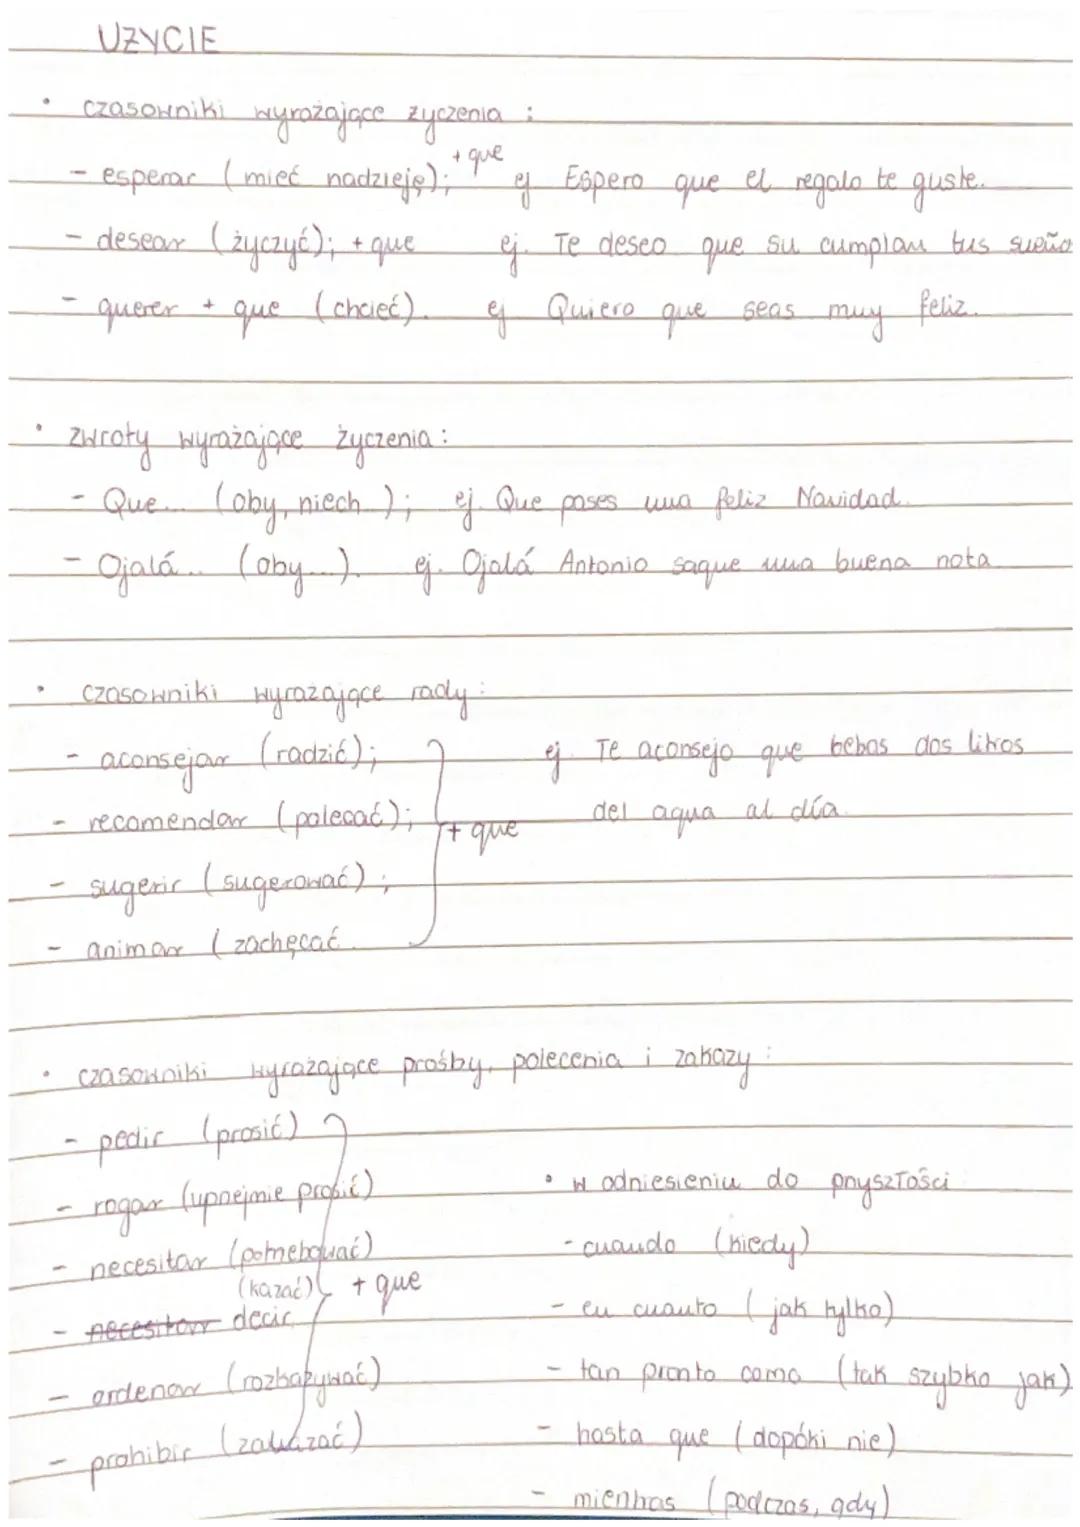 UŻYCIE
• czasowniki wyrażające życzenia :
- esperar (mieć nadzieję); + que ej Espero que el regalo te guste.
- desear (życzyć); + que ej. Te deseo que su cumplan tus sueño
- querer + que (chcieć). ej Quiero que seas muy feliz.
• zwroty wyrażające życzenia :
- Que... (oby, niech ); ej. Que pases una feliz Navidad.
- Ojalá... (oby...). ej. Ojalá Antonio saque una buena nota
• czasowniki wyrażające rady :
- aconsejar (radzić); ej. Te aconsejo que bebas dos litros
- recomendar (polecać); + que del agua al día.
- sugerir (sugerować) ;
- animar ( zachęcać.
• czasowniki wyrażające prośby, polecenia i zakazy :
- pedir (prosić)
- rogar (uprzejmie prosić)
- necesitar (potrzebować)
(kazać) + que
- necesitar decir
- ordenar (rozkazywać)
- prohibir (zakazać)
• w odniesieniu do przyszłości
- cuando (kiedy)
- en cuanto ( jak tylko)
- tan pronto como (tak szybko jak)
- hasta que ( dopóki nie)
- mientras (podczas, gdy)